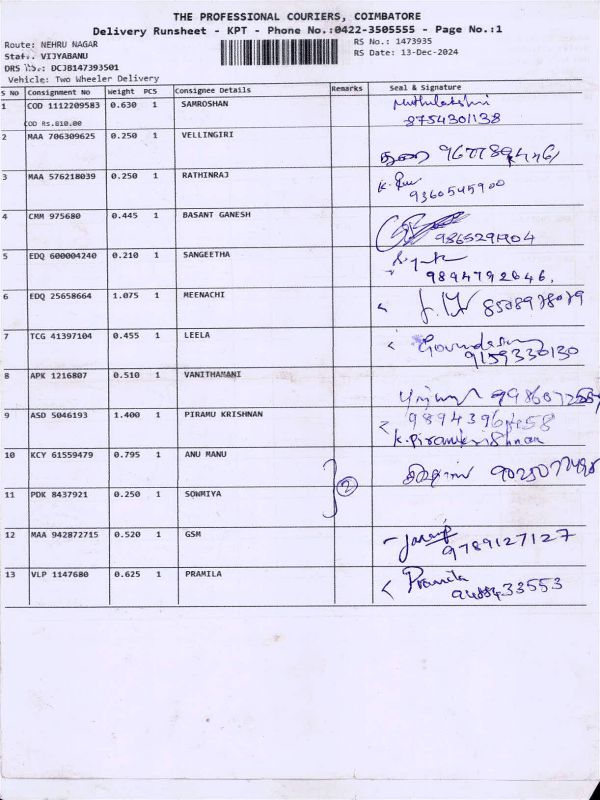 THE PROFESSIONAL COURIERS, COIMBATORE
Delivery Runsheet - KPT - Phone No.:0422-3505555 - Page No.:1
Route: NEHRU NAGAR RS No.: 1473935
Staff.: VIJYABANU RS Date: 13-Dec-2024
DRS No.: DCJB147393501
Vehicle: Two Wheeler Delivery
S No Consignment No Weight PCS Consignee Details Remarks Seal & Signature
1 COD 1112209583 0.630 1 SAMROSHAN Muthulakshmi
COD Rs.810.00 8754301138
2 MAA 706309625 0.250 1 VELLINGIRI
3 MAA 576218039 0.250 1 RATHINRAJ
9360545900
4 CMM 975680 0.445 1 BASANT GANESH
9865291904
5 EDQ 600004240 0.210 1 SANGEETHA
9894792646.
6 EDQ 25658664 1.075 1 MEENACHI 8508978079
7 TCG 41397104 0.455 1 LEELA
9159330130
8 APK 1216807 0.510 1 VANITHAMANI
9 ASD 5046193 1.400 1 PIRAMU KRISHNAN
K.Piramukrishnan
10 KCY 61559479 0.795 1 ANU MANU
2
11 PDK 8437921 0.250 1 SOWMIYA
12 MAA 942872715 0.520 1 GSM
9789127127
13 VLP 1147680 0.625 1 PRAMILA Pramila
9488433553